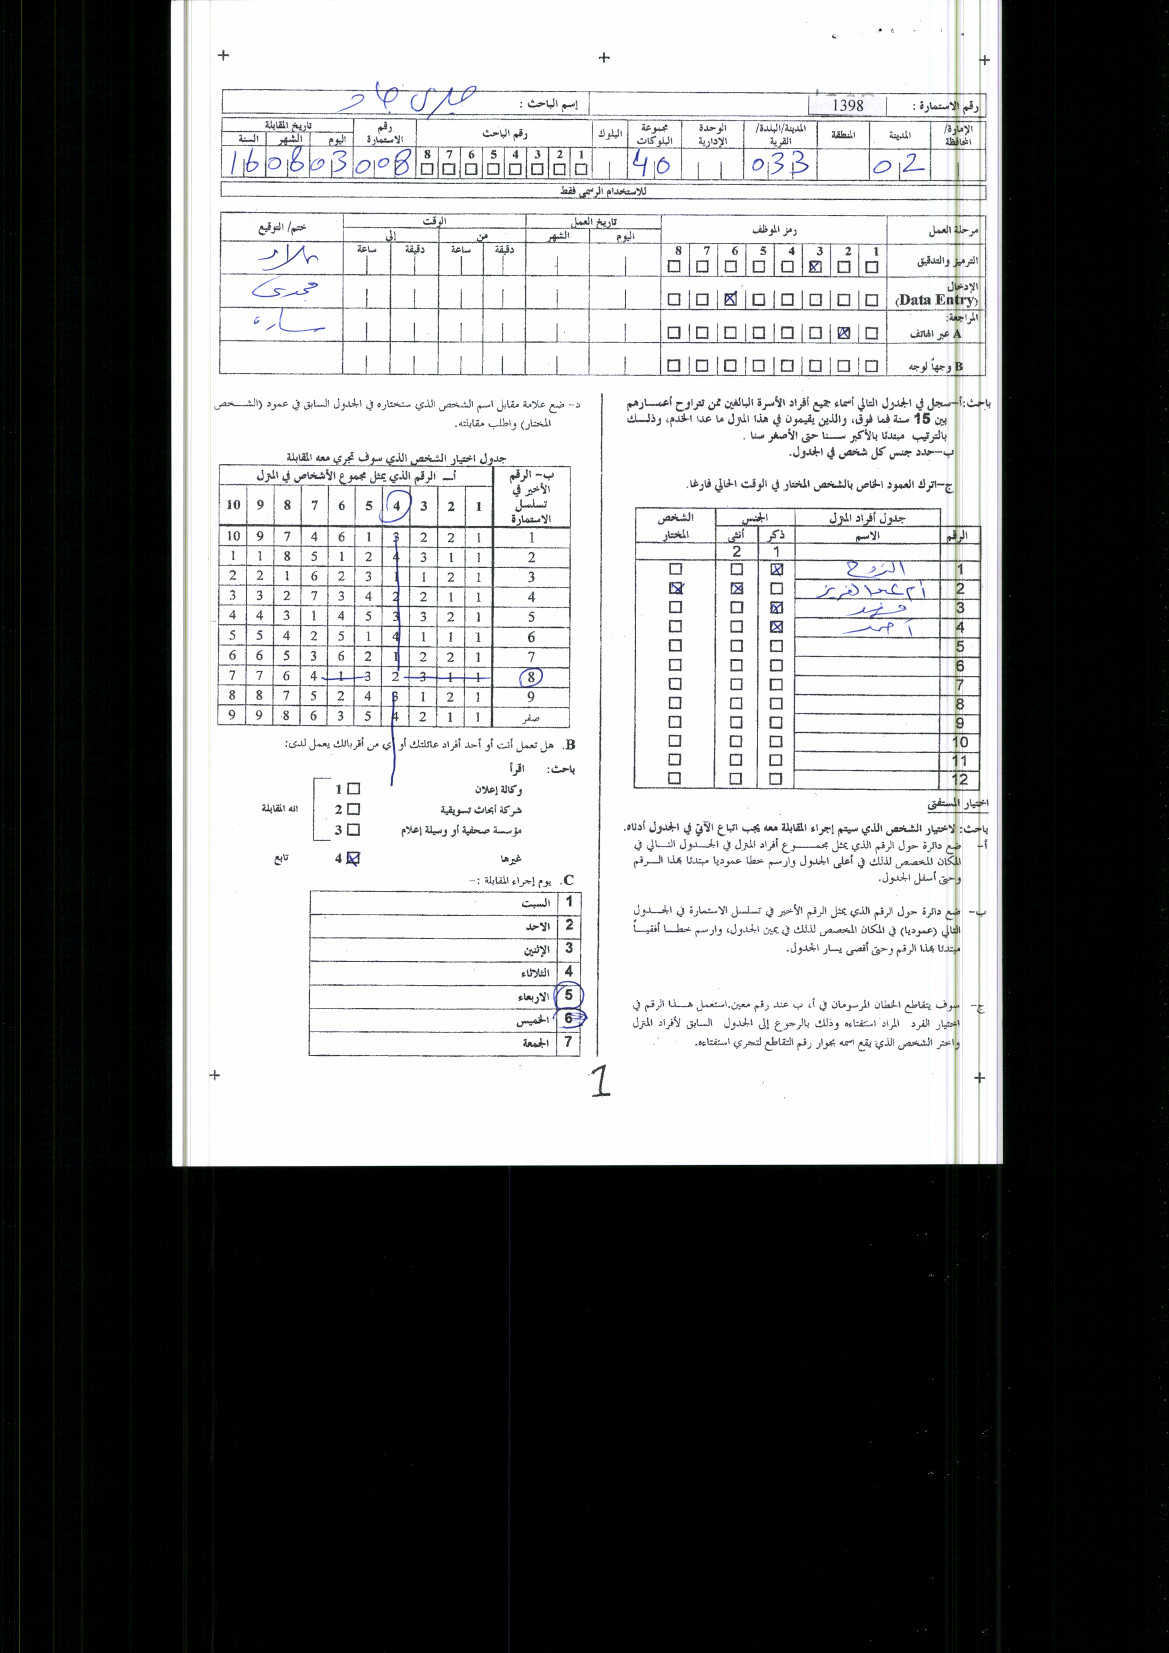 رقم الاستمارة : 1398
إسم الباحث :
الإمارة/المحافظة المدينة المنطقة المدينة/البلدة/القرية الوحدة الإدارية مجموعة البلوكات البلوك رقم الباحث رقم الاستمارة تاريخ المقابلة
اليوم الشهر السنة
1 2 3 4 5 6 7 8
02 033 40 008 03 08 16
للاستخدام الرسمي فقط
مرحلة العمل رمز الموظف تاريخ العمل الوقت ختم/ التوقيع
اليوم الشهر من إلى
دقيقة ساعة دقيقة ساعة
1 2 3 4 5 6 7 8
الترميز والتدقيق
الإدخال
(Data Entry) مجدي
المراجعة:
A عبر الهاتف سارة
B وجهاً لوجه
باحث: أ- سجل في الجدول التالي أسماء جميع أفراد الأسرة البالغين ممن تتراوح أعمـــارهم
بين 15 سنة فما فوق، والذين يقيمون في هذا المنزل ما عدا الخدم، وذلـــك
بالترتيب مبتدئا بالأكبر ســنا حتى الأصغر سنا .
ب- حدد جنس كل شخص في الجدول.
ج- اترك العمود الخاص بالشخص المختار في الوقت الحالي فارغا.
جدول أفراد المنزل الجنس الشخص المختار
الرقم الاسم ذكر أنثى
1 2
1 الزوج
2 أم عبد العزيز
3 فهد
4 أحمد
5
6
7
8
9
10
11
12
اختيار المستفتى
باحث: لاختيار الشخص الذي سيتم إجراء المقابلة معه يجب اتباع الآتي في الجدول أدناه.
أ- ضع دائرة حول الرقم الذي يمثل مجمـــوع أفراد المنزل في الجـــدول التـــالي في
المكان المخصص لذلك في أعلى الجدول وارسم خطا عموديا مبتدئا بهذا الـــرقم
وحتى أسفل الجدول.
ب- ضع دائرة حول الرقم الذي يمثل الرقم الأخير في تسلسل الاستمارة في الجـــدول
التالي (عموديا) في المكان المخصص لذلك في يمين الجدول، وارسم خطـــا أفقيـــاً
مبتدئا بهذا الرقم وحتى أقصى يسار الجدول.
ج- سوف يتقاطع الخطان المرسومان في أ، ب عند رقم معين.استعمل هـــذا الرقم في
اختيار الفرد المراد استفتاءه وذلك بالرجوع إلى الجدول السابق لأفراد المنزل
واختر الشخص الذي يقع اسمه بجوار رقم التقاطع لتجري استفتاءه.
د- ضع علامة مقابل اسم الشخص الذي ستختاره في الجدول السابق في عمود (الشـــخص
المختار) واطلب مقابلته.
جدول اختيار الشخص الذي سوف تجري معه المقابلة
ب- الرقم الأخير في تسلسل الاستمارة
أـ الرقم الذي يمثل مجموع الأشخاص في المنزل
1 2 3 4 5 6 7 8 9 10
1 1 2 2 3 1 6 4 7 9 10
2 1 1 3 4 2 1 5 8 1 1
3 1 2 1 1 3 2 6 1 2 2
4 1 1 2 2 4 3 7 2 3 3
5 1 2 3 3 5 4 1 3 4 4
6 1 1 1 4 1 5 2 4 5 5
7 1 2 2 1 2 6 3 5 6 6
8 1 1 3 2 3 1 4 6 7 7
9 1 2 1 3 4 2 5 7 8 8
صفر 1 1 2 4 5 3 6 8 9 9
B. هل تعمل أنت أو أحد أفراد عائلتك أو أي من أقربائك يعمل لدى:
باحث: اقرأ
وكالة إعلان 1
شركة أبحاث تسويقية 2 انه المقابلة
مؤسسة صحفية أو وسيلة إعلام 3
غيرها 4 تابع
C. يوم إجراء المقابلة :-
1 السبت
2 الاحد
3 الإثنين
4 الثلاثاء
5 الاربعاء
6 الخميس
7 الجمعة
1